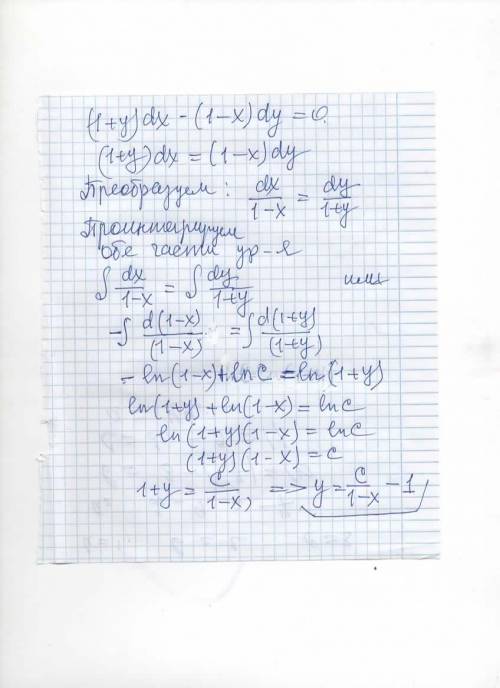 (1+y)dx - (1-x)dy = 0.
(1+y)dx = (1-x)dy
Преобразуем: dx/(1-x) = dy/(1+y)
Проинтегрируем
обе части ур-я
∫ dx/(1-x) = ∫ dy/(1+y) или
-∫ d(1-x)/(1-x) = ∫ d(1+y)/(1+y)
-ln(1-x)+lnC = ln(1+y)
ln(1+y)+ln(1-x) = lnC
ln(1+y)(1-x) = lnC
(1+y)(1-x) = C
1+y = C/(1-x), => y = C/(1-x) - 1